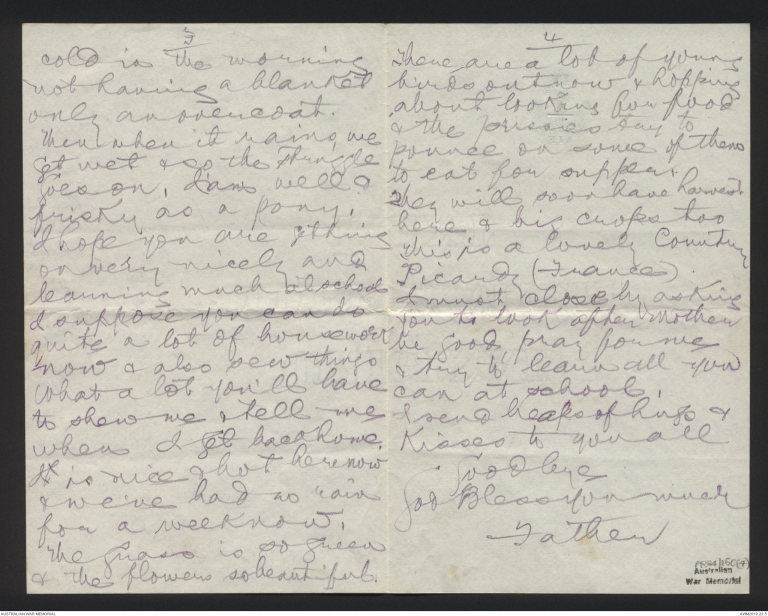 3
cold in the morning
not having a blanket
only an overcoat.
Then when it rains, we
get wet & so the struggle
goes on, I am well &
frisky as a pony,
I hope you are getting
on very nicely and
learning much at school
I suppose you can do
quite a lot of housework
now & also sew things
what a lot you'll have
to show me & tell me
when I get back home
It is nice & hot here now
& we've had no rain
for a week now,
The grass is so green
& the flowers so beautiful.
4
There are a lot of young
birds out now & hopping
about looking for food
& the pussies try to
pounce on some of them
to eat for supper.
They will soon have harvest
here & big crops too
This is a lovely Country
Picardy (France).
I must close by asking
you to look after Mother
be good, pray for me
& try to learn all you
can at school,
I send heaps of hugs &
Kisses to you all
Goodbye
God Bless you much
Father
Australian
War Memorial
AUSTRALIAN WAR MEMORIAL